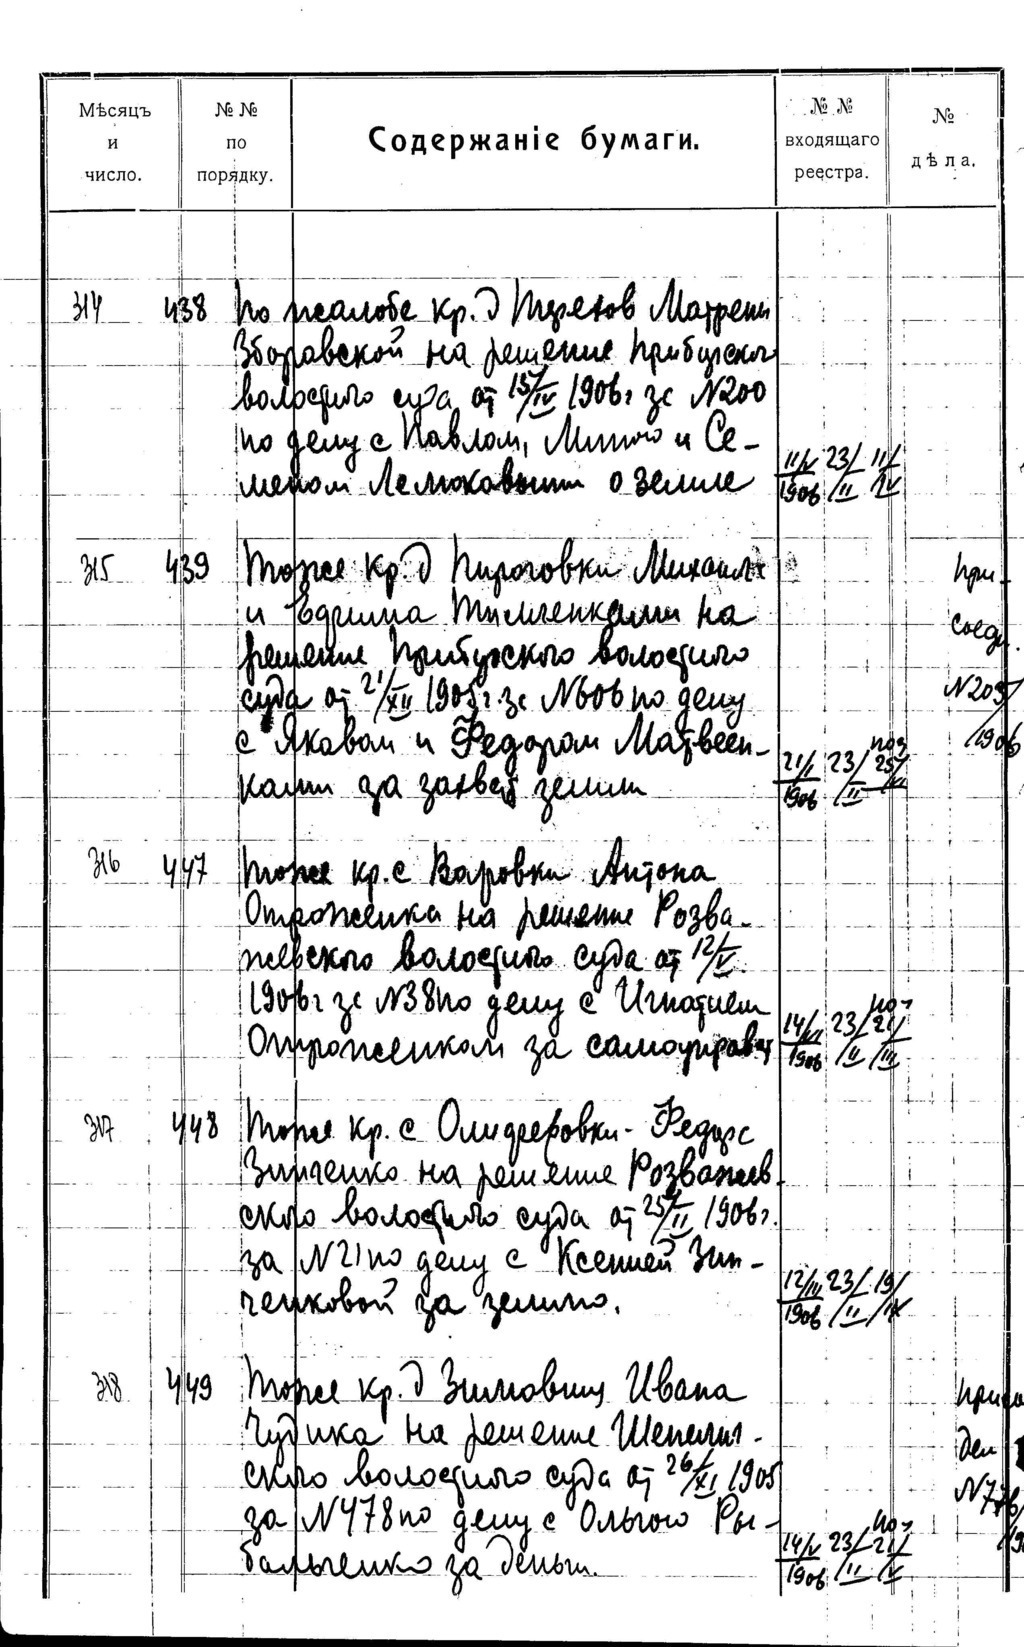 Мѣсяцъ
и
число.
№ №
по
порядку.
Содержаніе бумаги.
№ №
входящаго
реестра.
№
дѣла.
314 438 По жалобе кр. д Терехов Матрены
Зборавской на решение Прибурског
волостного суда от 15/IV 1906 г за N200
по делу с Павлом, и Се-
меном о земле
11/V 23/ 11/
1906 /II /IV
315 439 Тоже кр. д Пироговки Михаила
и Ефрима Тимченками на
решение Прибурского волостного
суда от 21/XII 1905 г. за N606 по делу
с Яковом и Федором Матвеен-
ками за захват земли
21/I 23/ 25/
1906 /II
при-
соед.
N209/
/1906
316 447 Тоже кр. с Варовки Антона
Отроженка на решение Розва-
жевского волостного суда от 12/V
1906 г за N38 по делу с Игнатием
Отроженком за самоуправст
14/VI 23/ 21/
1906 /II /III
317 448 Тоже кр. с Олизаревки - Федора
Зинченко на решение Розважев
ского волостного суда от 25/II 1906 г.
за N21 по делу с Ксенией Зин-
ченковой за землю.
12/III 23/ 19/
1906 /II /IX
318 449 Тоже кр. д Зимовищ Ивана
Чудика на решение Шепелич-
ского волостного суда от 26/XI 1905
за N478 по делу с Ольгою Ры-
бальченко за деньги.
14/V 23/ 21/
1906 /II /V
дел